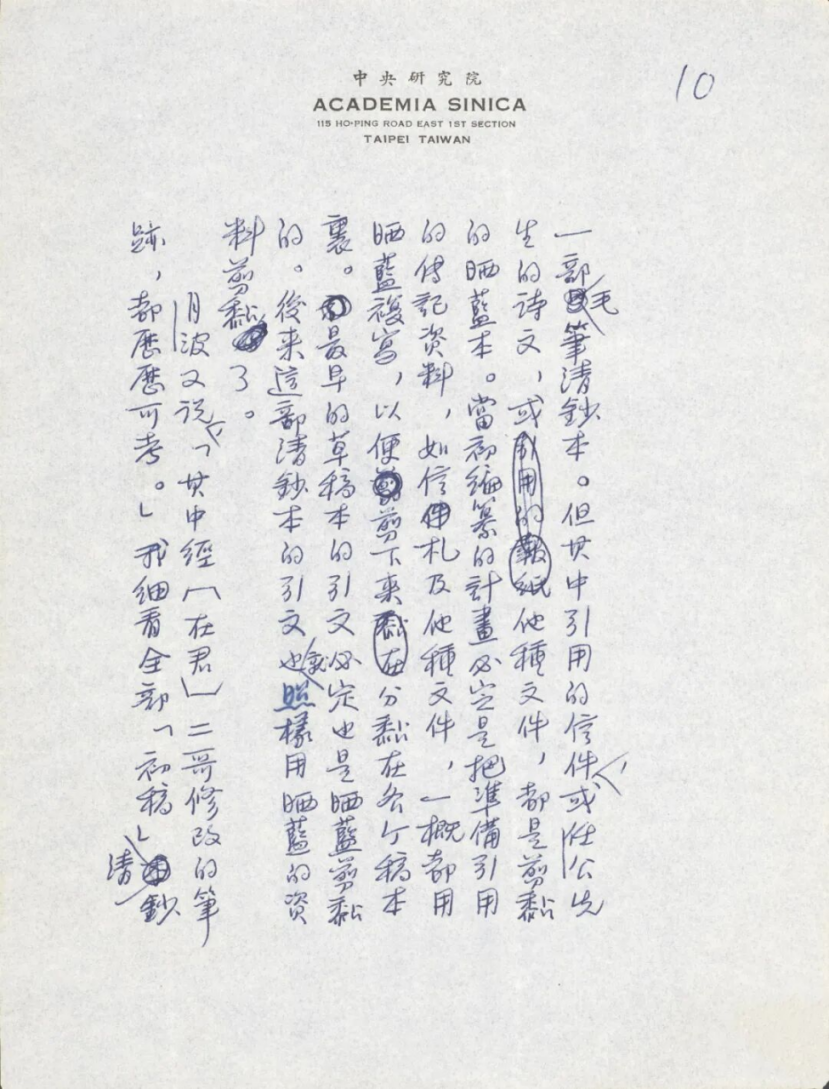 中央研究院
ACADEMIA SINICA
115 HO-PING ROAD EAST 1ST SECTION
TAIPEI TAIWAN
10
一部毛筆清鈔本。但其中引用的信件,或任公先
生的詩文,或他種文件,都是剪黏
的晒藍本。當初編纂的計畫必定是把準備引用
的傳記資料,如信札及他種文件,一概都用
晒藍複寫,以便剪下來分黏在各个稿本
裏。最早的草稿本的引文必定也是晒藍剪黏
的。後来這部清鈔本的引文也就照樣用晒藍的資
料剪黏了。
月波又説,「其中經[在君]二哥修改的筆
跡,都歷歷可考。」我細看全部「初稿」清鈔